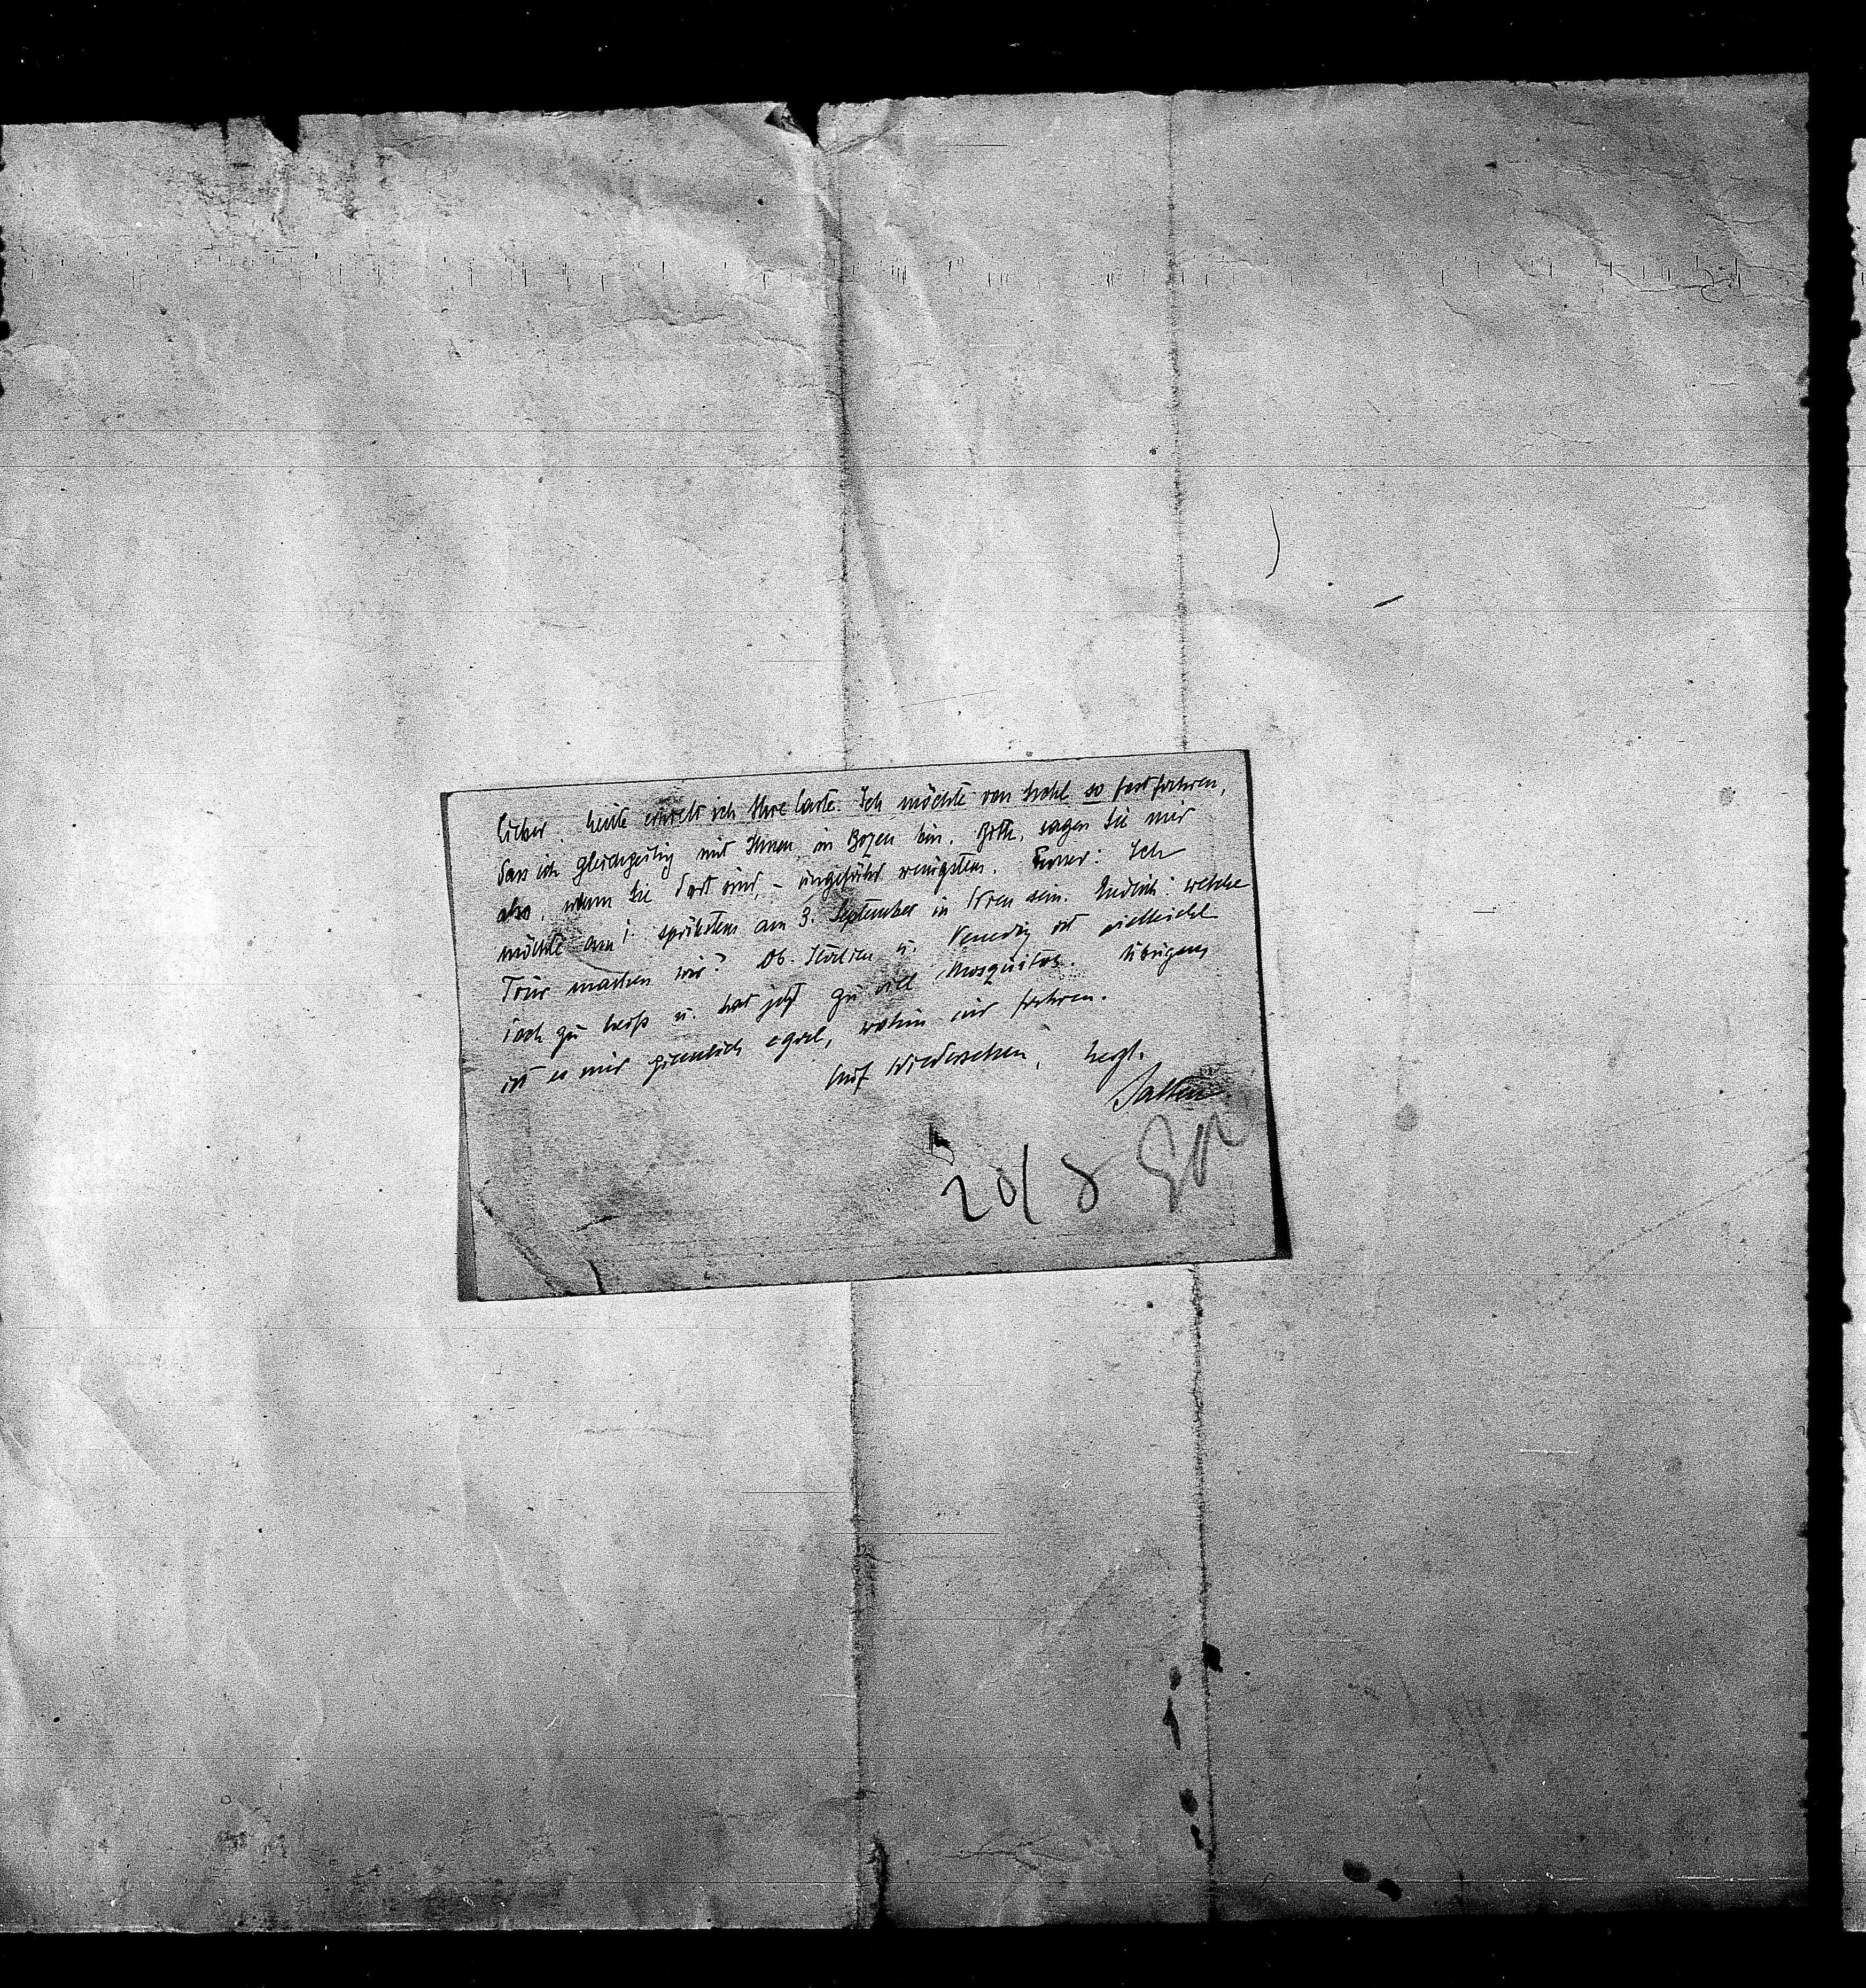 Lieber. heute erhielt ich Ihre Carte. Ich möchte von so fortfahren,
dass ich gleichzeitig mit Ihnen in Bozen bin. Bitte, sagen Sie mir
also, wann Sie dort sind, – ungefähr wenigstens. Ferner: Ich
möchte am spätestens am 3. September in Wien sein. Endlich: welche
Tour machen wir? Ob. Italien u. Venedig ist vielleicht
doch zu heiß u. hat jetzt zu viel Mosquitos. Übrigens
ist es mir ziemlich egal, wohin wir fahren.
Auf Wiedersehen, herzl.
Salten
20/8